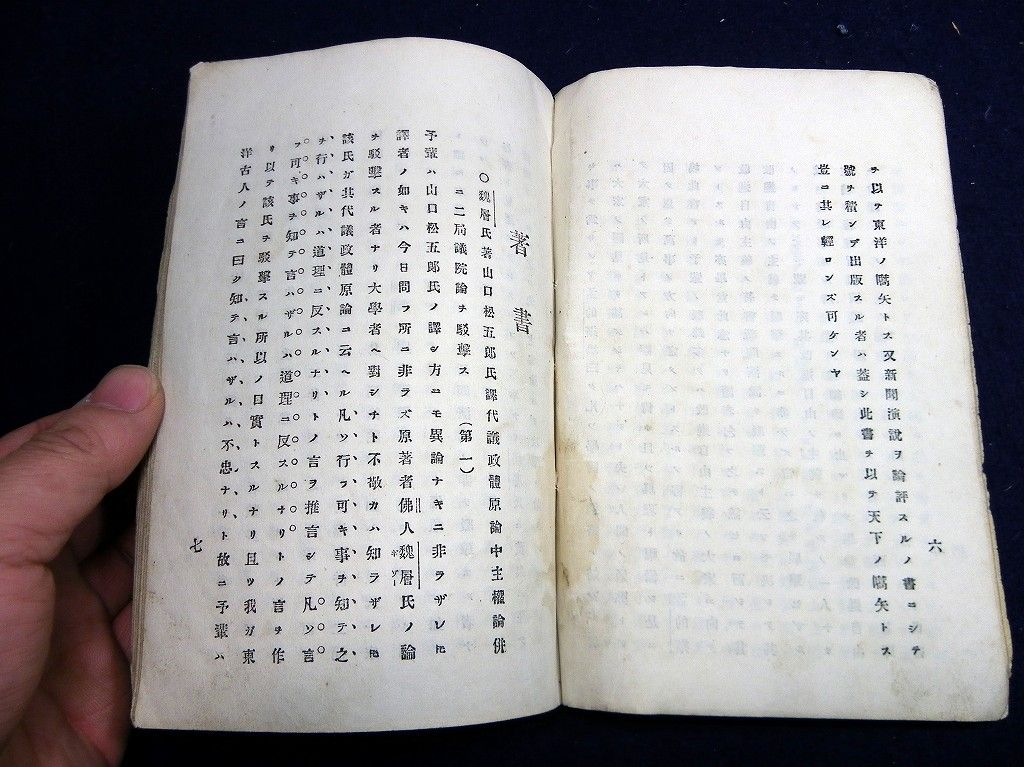 ヲ以テ東洋ノ嚆矢トス又新聞演說ヲ論評スルノ書ニシテ
號ヲ積ンデ出版スル者ハ蓋シ此書ヲ以テ天下ノ嚆矢トス
豈ニ其レ輕ロンズ可ケンヤ
六
著書
○魏層氏著山口松五郎氏譯代議政體原論中主權論併
ニ二局議院論ヲ駁擊ス(第一)
予輩ハ山口松五郎氏ノ譯シ方ニモ異論ナキニ非ラザレ𪜈
譯者ノ如キハ今日問フ所ニ非ラズ原著者佛人魏層氏ノ論
ギゾー
ヲ駁擊スル者ナリ大學者ヘ對シチト不敬カハ知ラザレ𪜈
該氏ガ其代議政體原論ニ云ヘル凡ソ行フ可キ事ヲ知テ之
ヲ行ハザルハ道理ニ反スルナリトノ言ヲ推言シテ凡ソ言
フ可キ事ヲ知テ言ハザルハ道理ニ反スルナリトノ言ヲ作
リ以テ該氏ヲ駁擊スル所以ノ口實トスルナリ且ツ我ガ東
洋古人ノ言ニ曰ク知テ言ハザルハ不忠ナリト故ニ予輩ハ
七